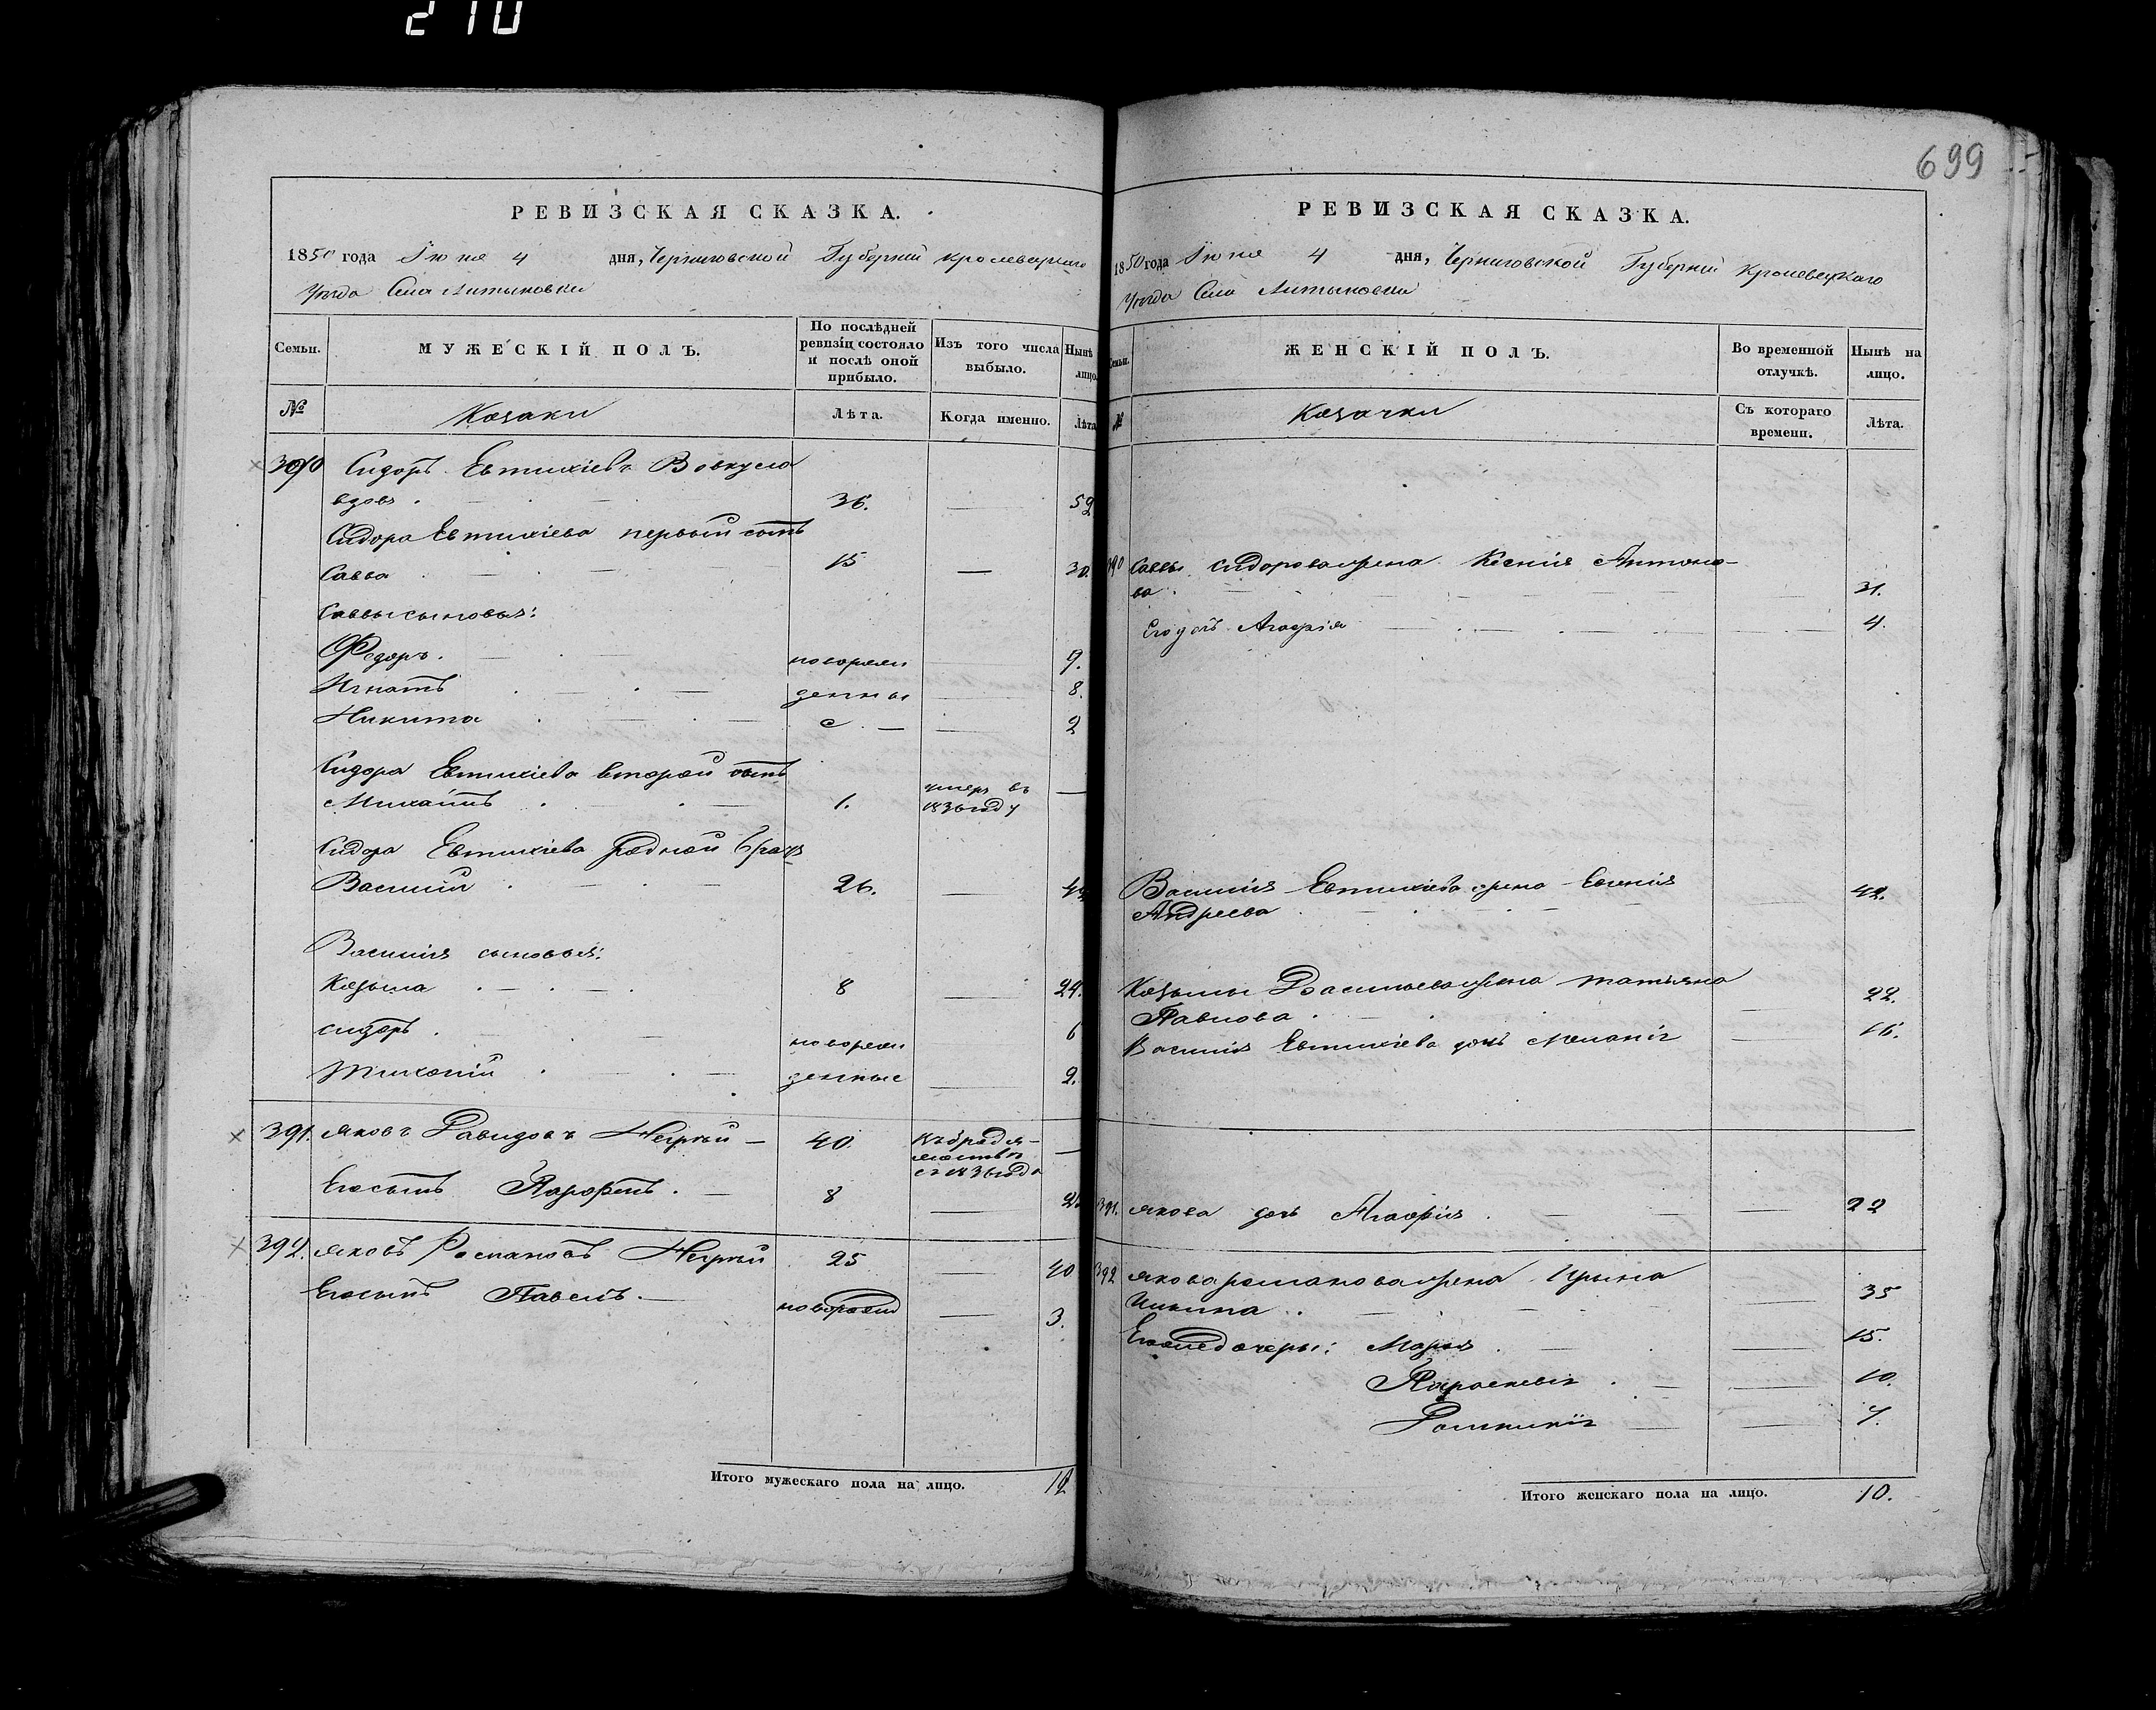 210
699
РЕВИЗСКАЯ СКАЗКА.
1850 года Іюня 4 дня, Черниговской Губерніи Кролевецкаго
Уезда Села Литыновки
Семьи.
МУЖЕСКІЙ ПОЛЪ.
По послѣдней
ревизіи состояло
и послѣ оной
прибыло.
Изъ того числа
выбыло.
Нынѣ
лицо.
№
Козаки
Лѣта.
Когда именно.
Лѣта
390 Сидоръ Евтихіевъ Вовкула
вдовъ 36. 52
Сидора Евтихіева первый сынъ
Савва 15 30.
Саввы сыновья:
Федоръ. новорож 9.
Игнатъ денны 8.
Никита е 2
Сидора Евтихіева второй сынъ
Михаилъ 1. умеръ въ
1836 году
Сидора Евтихіева родной братъ
Василий 26. 42
Василия сыновья:
Козьма 8 24.
Сидоръ 6
новорож
Тихоній денные 2.
391. Яковъ Давидовъ 40.
Въ бродя-
жествѣ
съ 1836 года
Его сынъ Парфенъ. 8
392. Яковъ Романовъ 25 40
Его сынъ Павелъ. новорожд 3.
Итого мужескаго пола на лицо. 12
РЕВИЗСКАЯ СКАЗКА.
1850 года Іюня 4 дня, Черниговской Губерніи Кролевецкаго
Уезда Села Литыновки
Семьи.
ЖЕНСКІЙ ПОЛЪ.
Во временной
отлучкѣ.
Нынѣ на
лицо.
№
Козачки
Съ котораго
времени.
Лѣта.
390 Саввы Сидорова жена Ксения Антоно-
ва 31.
Его дочь Агафія 4.
Василия Евтихіева жена Евгения
Андреева 42.
Козьмы Васильева жена Татьяна
Павлова 22.
Василия Евтихіева дочь Меланія 16.
391. Якова дочь Агафия 22
392 Якова Романова жена Ирына
35
Его дочеры: Марья 15.
Параскевія 10.
7.
Итого женскаго пола на лицо. 10.